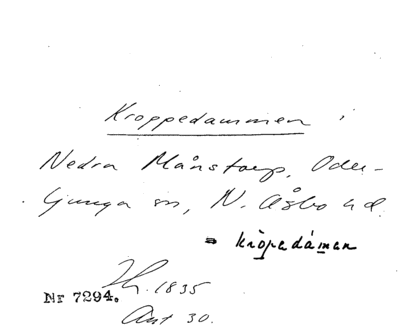 Kroppedammen i
Nedra Månstorp, Oder-
ljunga sn, N. Åsbo hd.
= kròpedámen
Nr 7294. 1835
Ant 30.